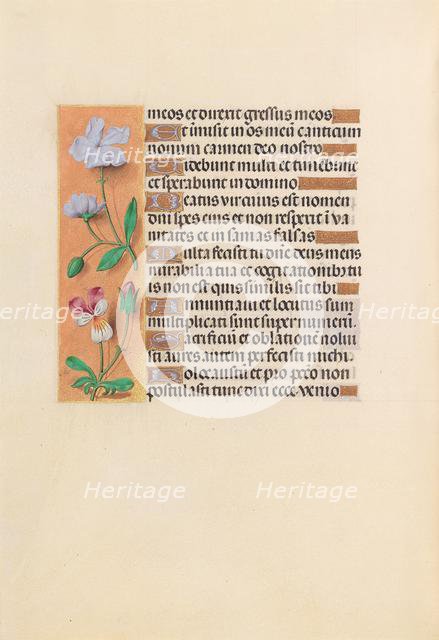 meos et direxit gressus meos
Et inmisit in os meū canticum
novum carmen deo nostro
Videbunt multi et timebunt
et sperabunt in domino
Beatus vir cuius est nomen
dn̄i spes eius et non respexit ī va
nitates et in sanias falsas
Multa fecisti tu dn̄e deus meus
mirabilia tua et cogitationibꝰ tu
is non est quis similis sit tibi
Annuntiavi et locutus sum
multiplicati sunt super numerū
Sacrificium et oblationē nolui
sti aures autem perfecisti michi
Holocaustū et pro pctō non
postulasti tunc dixi ecce venio
Heritage
Heritage
Heritage
Heritage
Heritage
Heritage